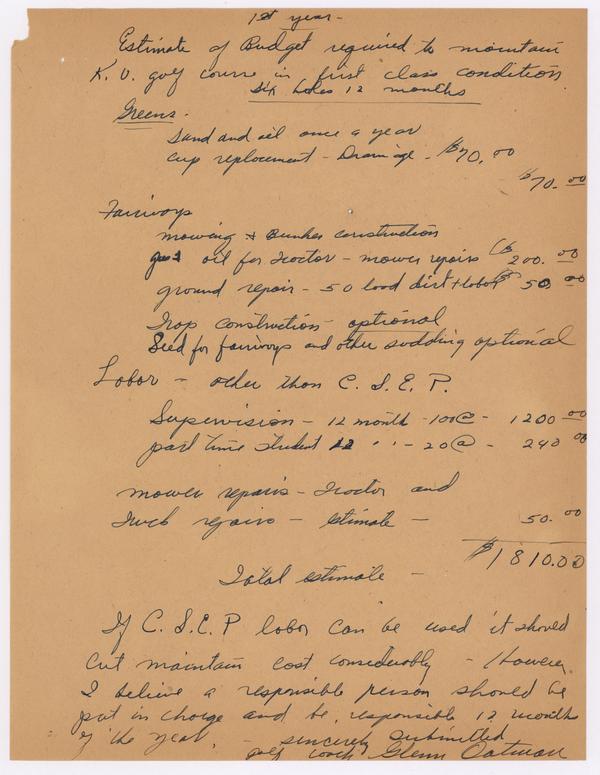 1st year -
Estimate of Budget required to maintain
K. U. golf course in first class condition
six holes 12 months
Greens.
Sand and oil once a year
cup replacement - Drainage - $70.00
$70.00
Fairways
mowing & Bunker construction
gas & oil for Tractor - mower repairs $200.00
ground repair - 50 load dirt + labor $50.00
Trap construction - optional
Seed for fairways and other sodding optional
Labor - other than C. S. E. P.
Supervision - 12 month - 100@ - 1200.00
part time student 12 " " - 20@ - 240.00
mower repairs - Tractor and
Truck repairs - estimate - 50.00
$1810.00
Total estimate -
If C. S. E. P labor can be used it should
cut maintain cost considerably - However
I believe a responsible person should be
put in charge and be responsible 12 months
of the year. - sincerely submitted
golf coach Glenn Oatman